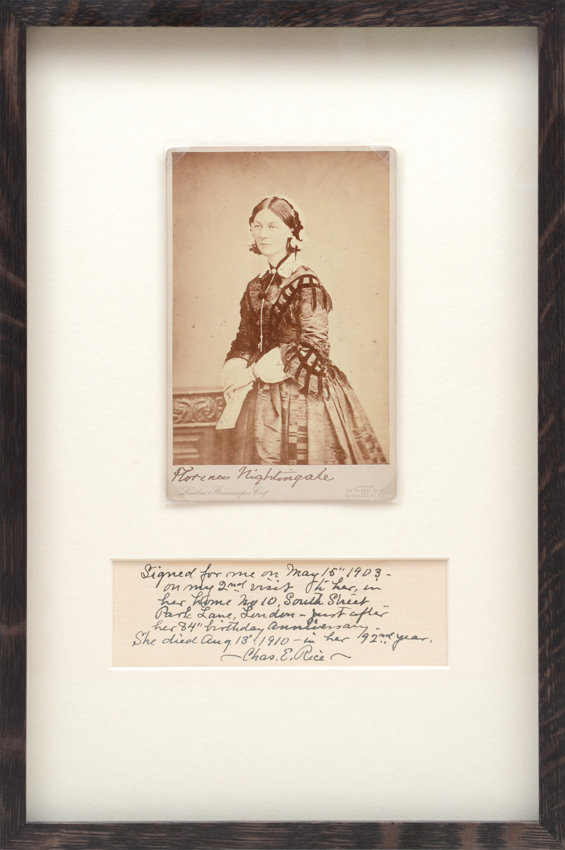 Florence Nightingale
London Stereoscopic Coy.
Signed for me on May 15" 1903 -
on my 2nd visit to her, in
her Home No 10, South Street
Park Lane, London - just after
her 84" birthday Anniversary -
She died Aug 13" 1910 - in her 92nd year.
~ Chas. E. Rice ~